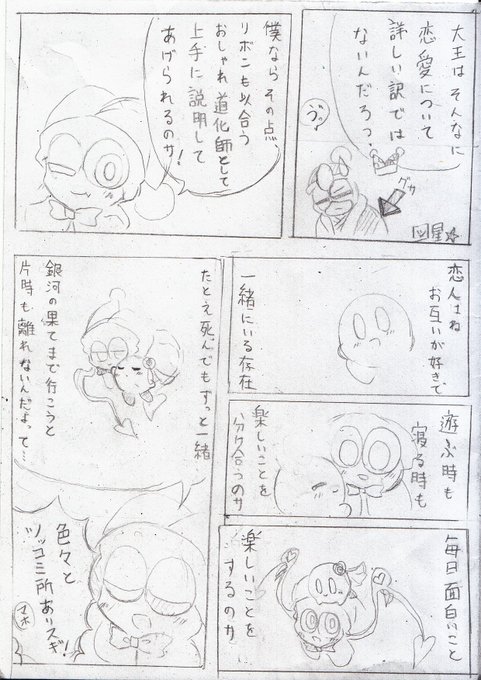 大王はそんなに
恋愛について
詳しい訳では
ないんだろっ?
グサ
図星
僕ならその点
リボンも似合う
おしゃれ道化師として
上手に説明して
あげられるのサ!
恋人はね
お互いが好きで
一緒にいる存在
遊ぶ時も
寝る時も
楽しいことを
分け合うのサ
毎日面白いこと
楽しいことを
するのサ
たとえ死んでもずっと一緒
銀河の果てまで行こうと
片時も離れないんだよって…
色々と
ツッコミ所ありスギ!